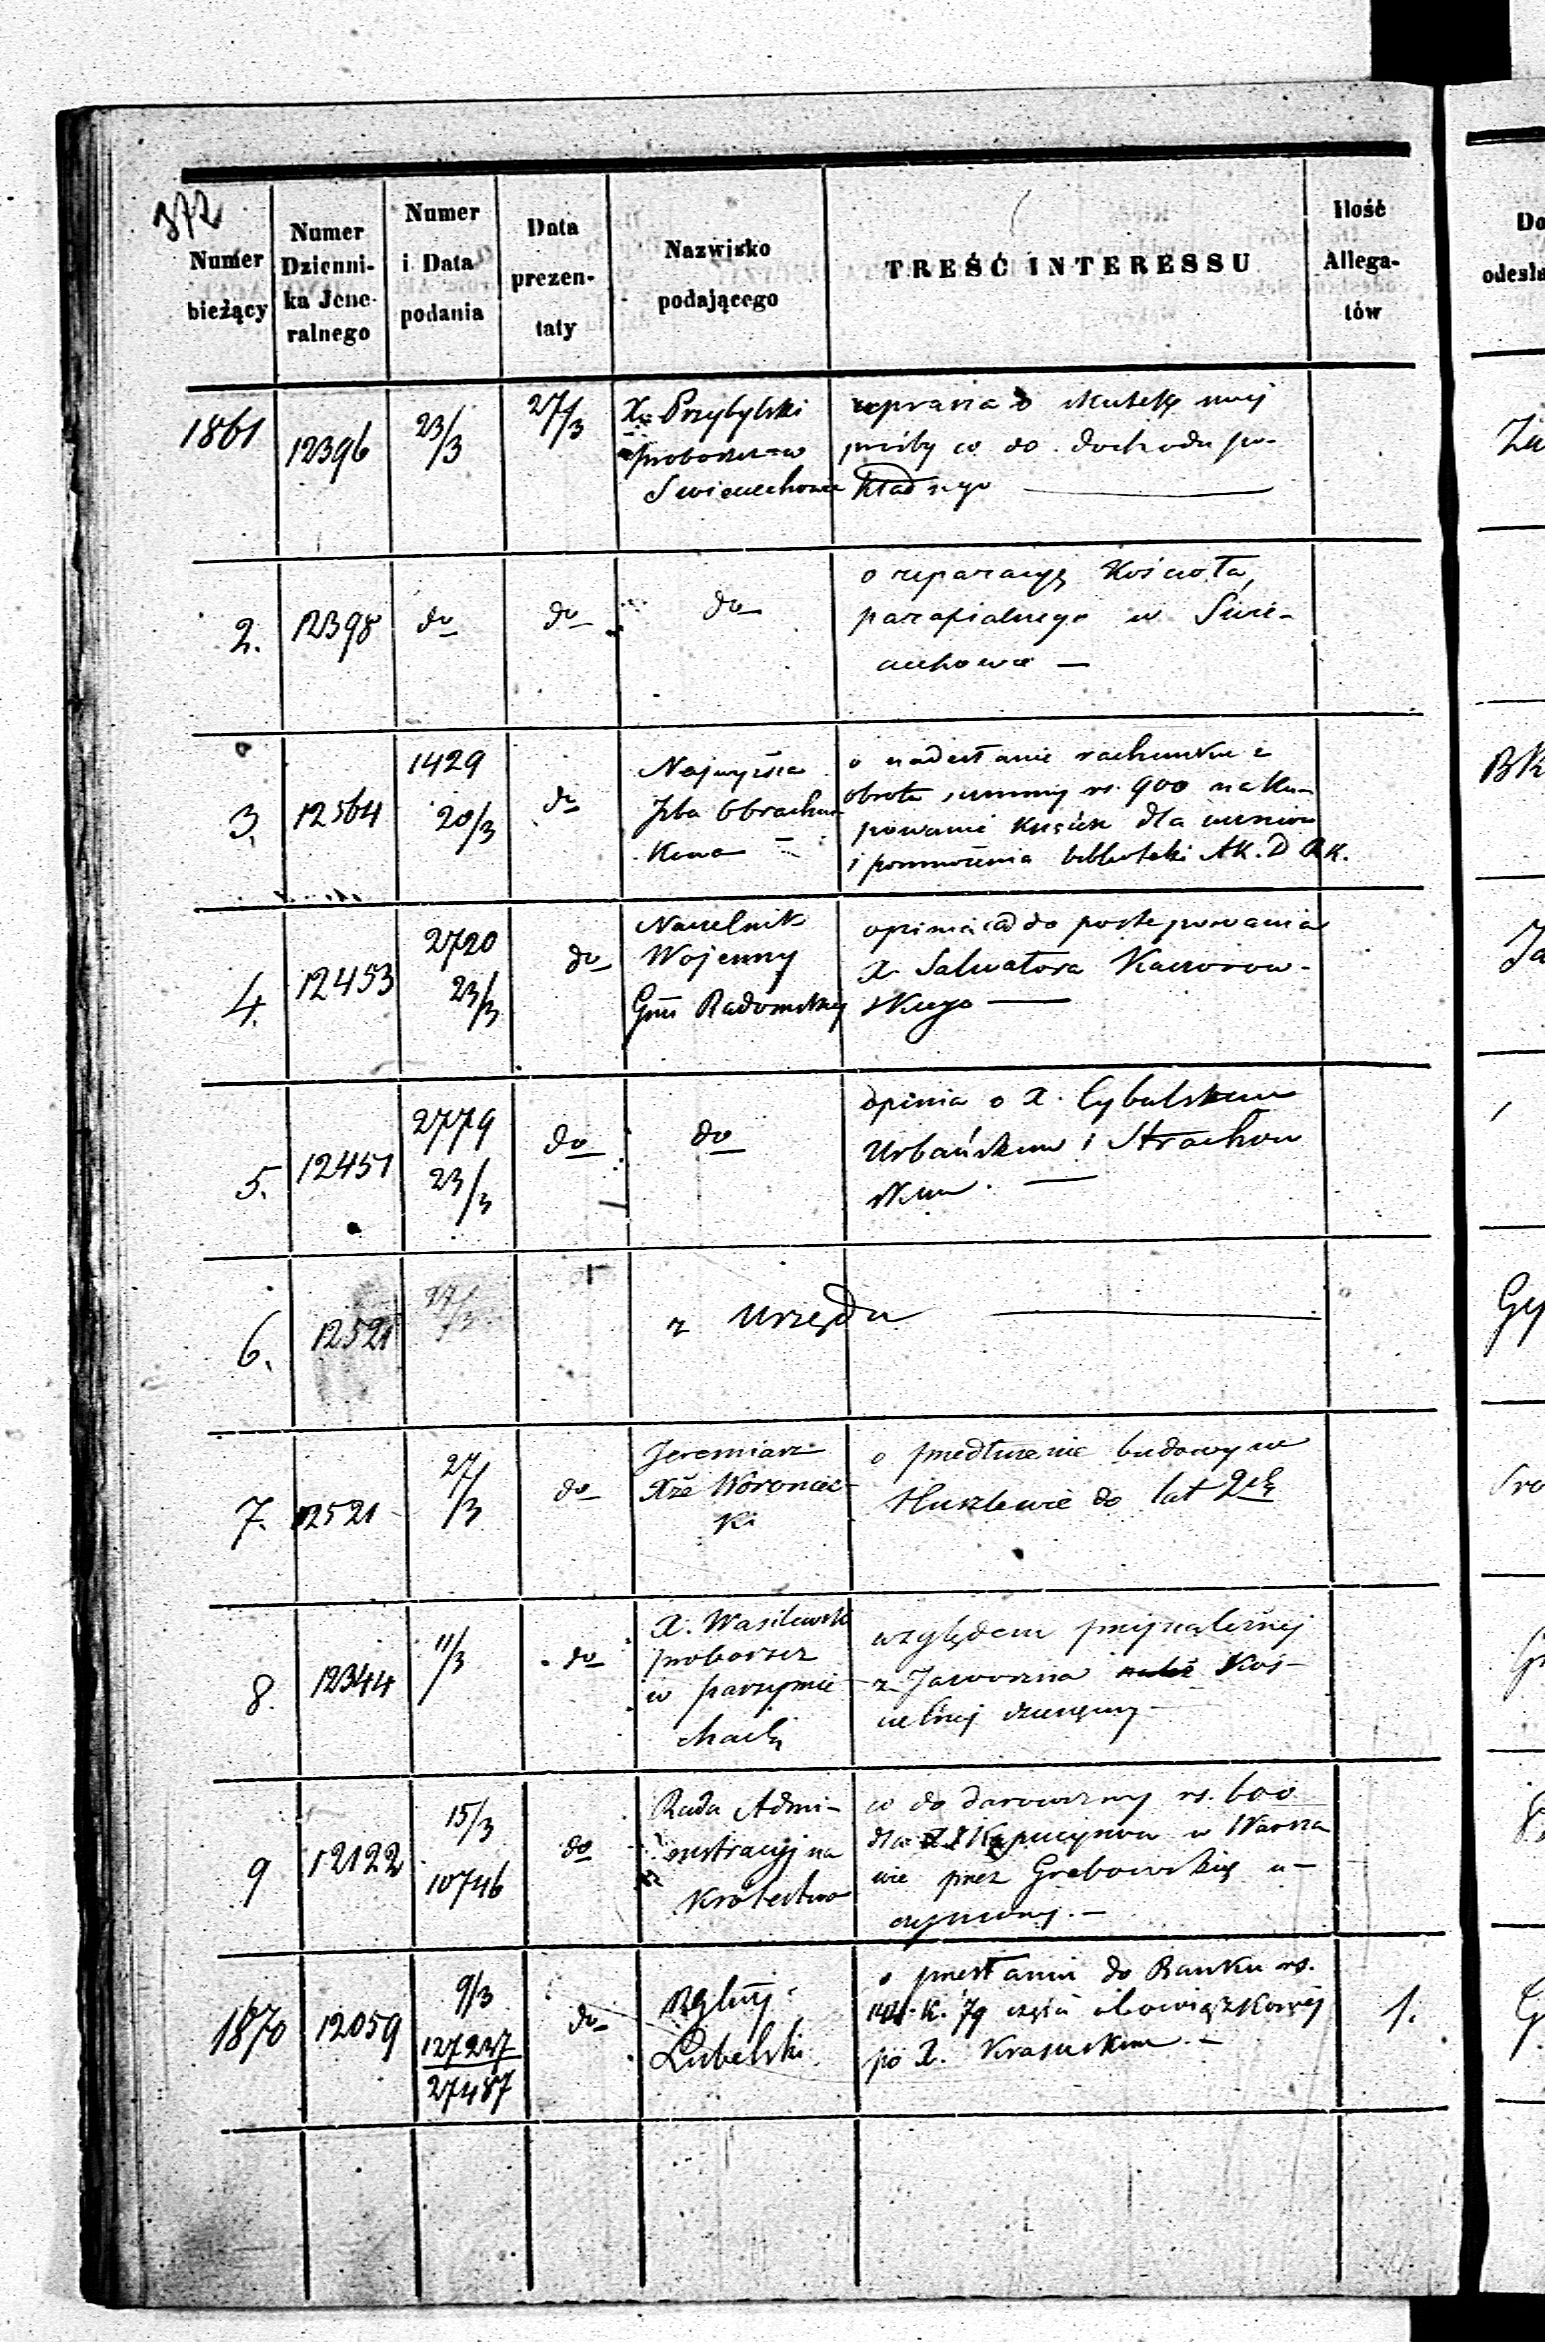 372
Numer bieżący
Numer Dzienni- ka Jene- ralnego
Numer i Data podania
Data prezen- taty
Nazwisko podającego
TREŚĆ INTERESSU
Ilość Allega- tów
1861
12396
23/3
27/3
X. Przybylski
proboszcz w
Swieciechowie
uprasza o skutek swej
prośby co do dochodu po-
kładnego
2.
12398
do
do
do
o reparacyę Kościoła,
parafialnego w Swie-
ciechowie —
3.
12564
1429
20/3
do
Najwyższa
Izba Obrachun-
kowa —
o nadesłanie rachunku z
obrotu summy rs. 900 na ku-
powanie książek dla uczniów
i pomnożenia biblioteki AK. D RK.
4.
12453
2720
23/3
do
Naczelnik
Wojenny
Gnii Radomskiej
opinia co do postępowania
X. Salwatora Kaczorow-
skiego —
5.
12451
2779
23/3
do
do
opinia o X. Cybulskim
Urbańskim i Strachow
skim. —
6.
12521
27/3
z Urzędu
7.
12521
27/3
do
Jeremiasz
Xże Woroniec-
ki
o przedłużenie budowy w
Huszlewie do lat 2ch
8.
12344
11/3
do
X. Wasilewski
proboszcz
w parzymie-
chach
względem przynależnej
z Jaworzna Koś-
cielnej dziesięciny —
9
12122
15/3
10746
do
Rada Admi-
nistracyjna
Królestwa
co do darowizny rs. 600
dla XX Kapucynów w Warsza
wie przez Grabowską u-
czynionej. —
1870
12059
9/3
127247
27487
do
Rząd Gnij
Lubelski
o przesłaniu do Banku rs.
k. 79 części obowiązkowej
po X. Krasuskim. —
1.
Do
odesła